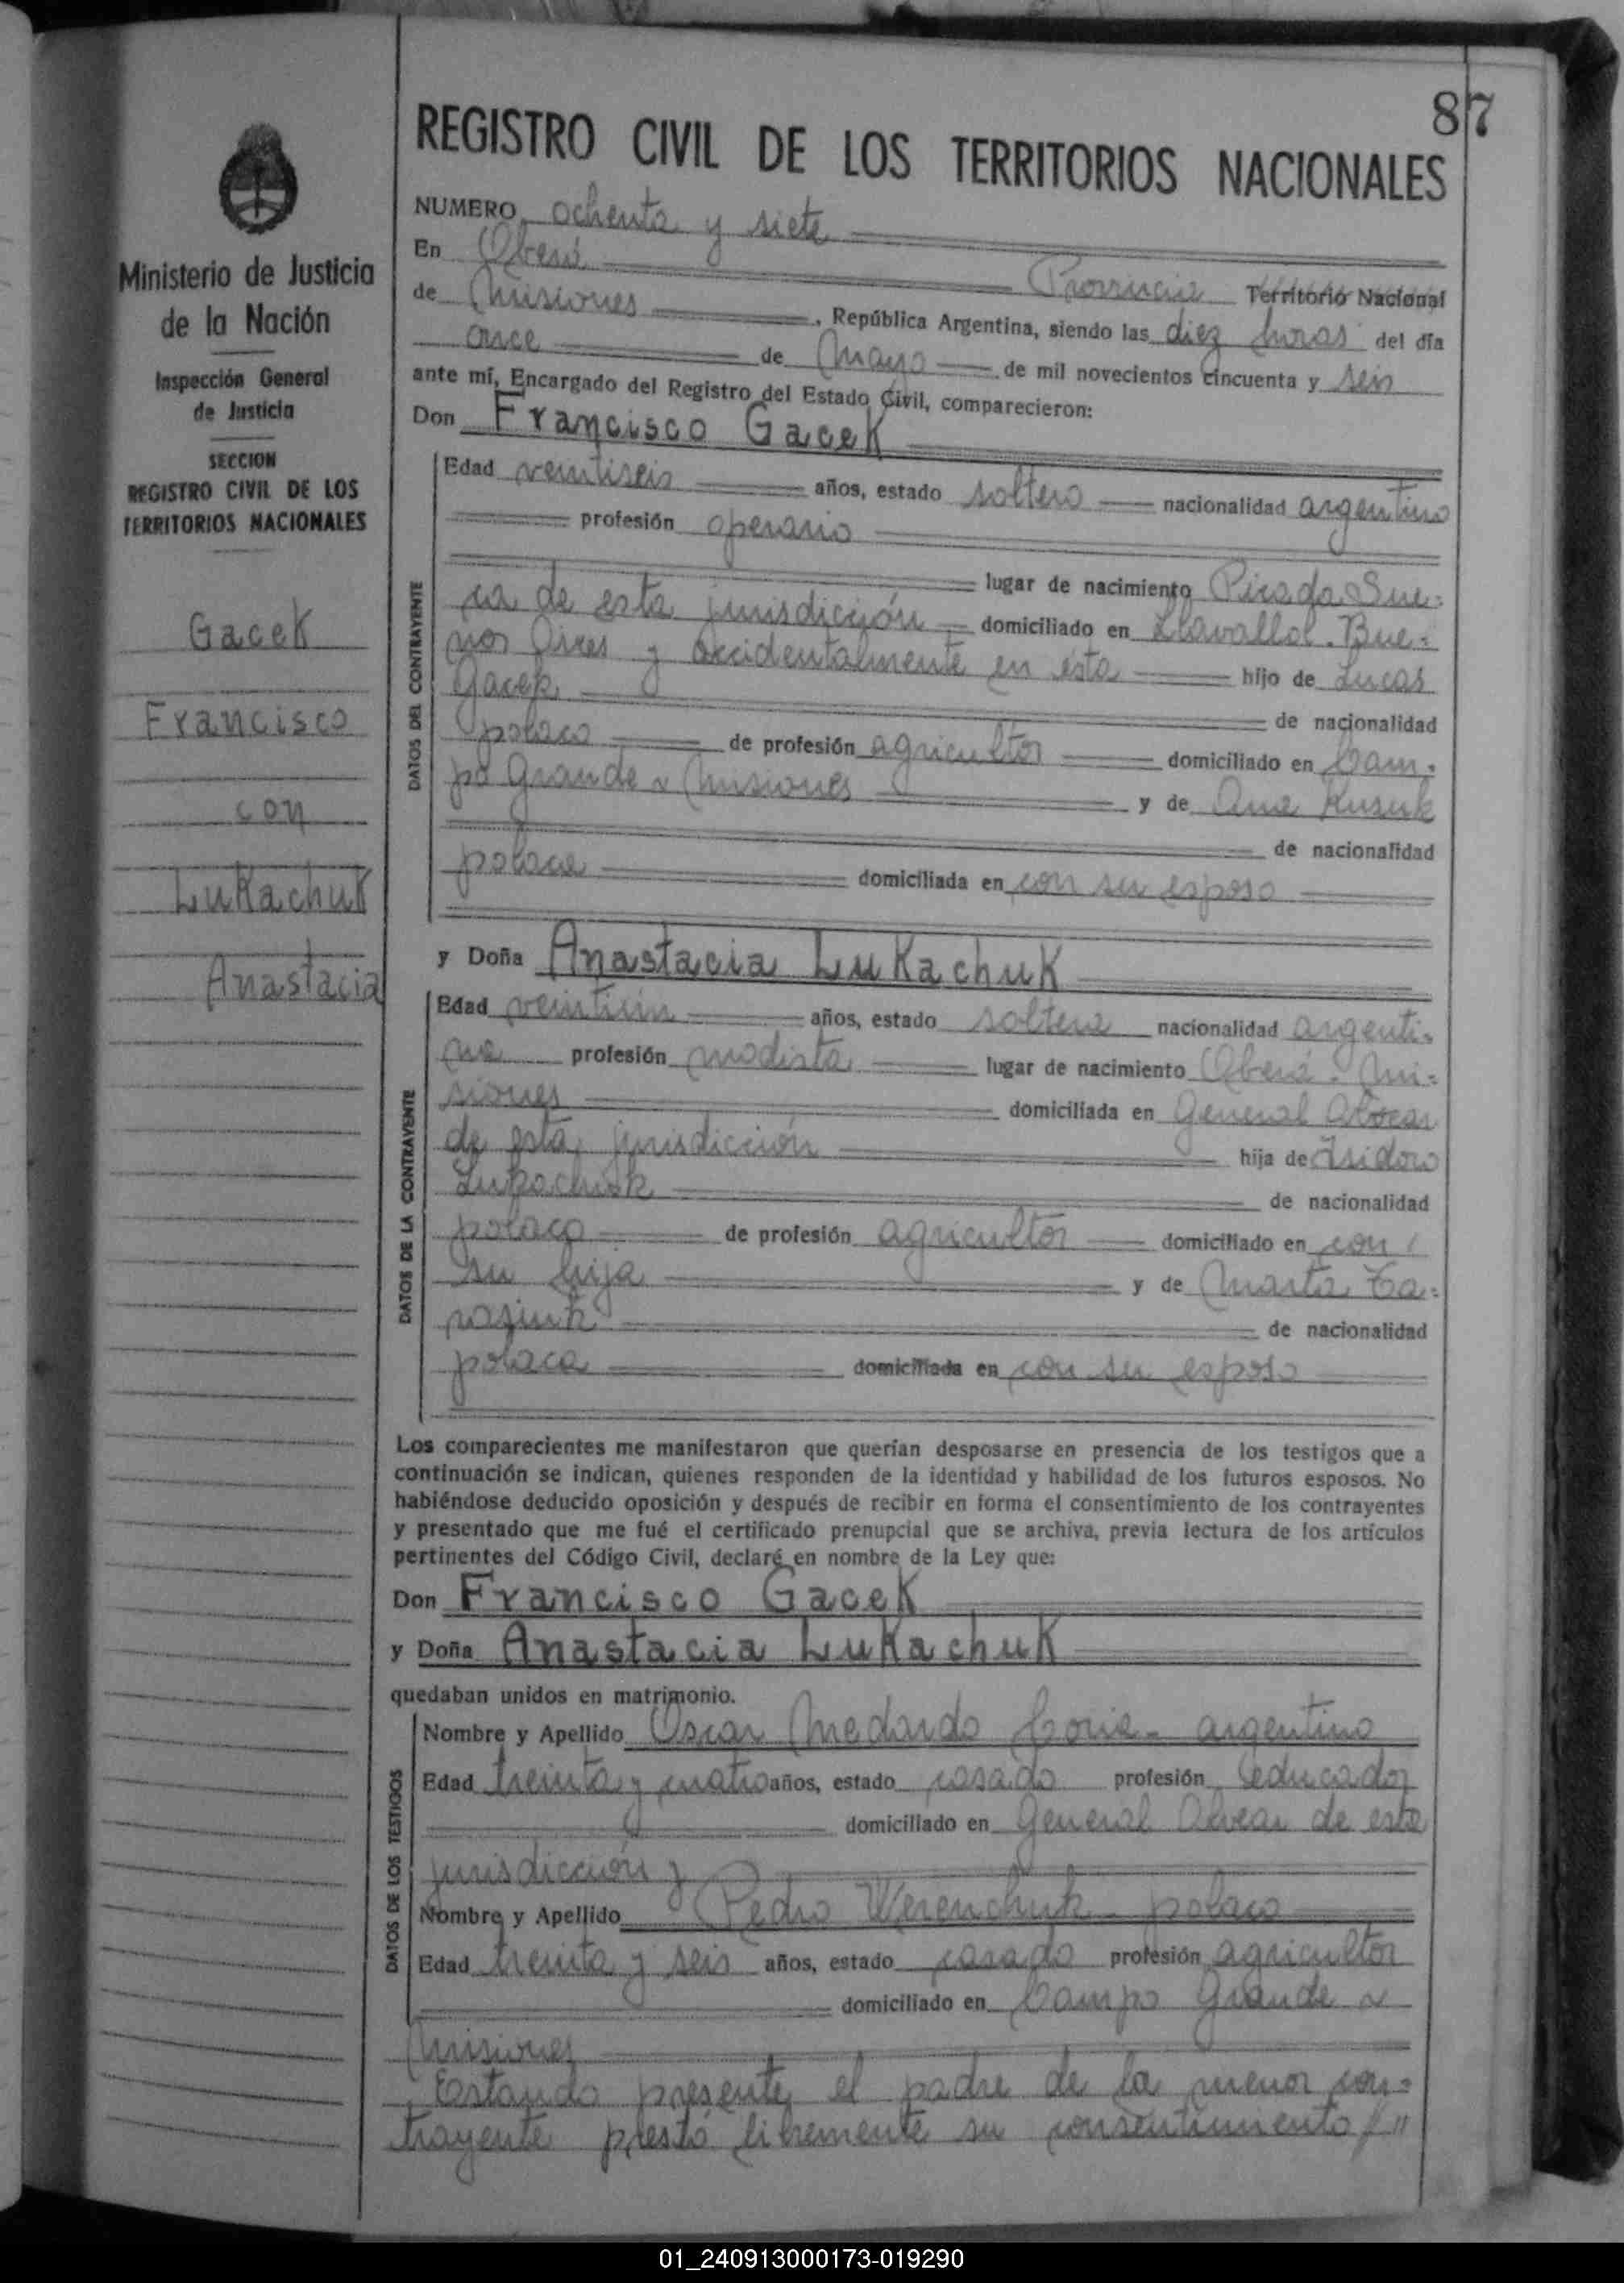 87
REGISTRO CIVIL DE LOS TERRITORIOS NACIONALES
Ministerio de Justicia
de la Nación
Inspección General
de Justicia
SECCION
REGISTRO CIVIL DE LOS
TERRITORIOS NACIONALES
Gacek
Francisco
con
Lukachuk
Anastacia
NUMERO ochenta y siete
En Oberá Provincia Territorio Nacional
de Misiones, República Argentina, siendo las diez horas del día
once de Mayo de mil novecientos cincuenta y seis
ante mí, Encargado del Registro del Estado Civil, comparecieron:
Don Francisco Gacek
DATOS DEL CONTRAYENTE
Edad veintiseis años, estado soltero nacionalidad argentino
profesión operario
lugar de nacimiento Picada Sue=
ca de esta jurisdicción domiciliado en Llavallol. Bue=
nos Aires y accidentalmente en ésta hijo de Lucas
Gacek de nacionalidad
polaco de profesión agricultor domiciliado en Cam=
po Grande ~ Misiones y de Ana Kusuk
de nacionalidad
polaca domiciliada en con su esposo
y Doña Anastacia Lukachuk
DATOS DE LA CONTRAYENTE
Edad veintiún años, estado soltera nacionalidad argenti=
na profesión modista lugar de nacimiento Oberá - Mi=
siones domiciliada en General Alvear
de esta jurisdicción hija de Isidoro
Lukachuk de nacionalidad
polaco de profesión agricultor domiciliado en con
su hija y de Marta Ta=
rasiuk de nacionalidad
polaca domiciliada en con su esposo
Los comparecientes me manifestaron que querían desposarse en presencia de los testigos que a
continuación se indican, quienes responden de la identidad y habilidad de los futuros esposos. No
habiéndose deducido oposición y después de recibir en forma el consentimiento de los contrayentes
y presentado que me fué el certificado prenupcial que se archiva, previa lectura de los artículos
pertinentes del Código Civil, declaré en nombre de la Ley que:
Don Francisco Gacek
y Doña Anastacia Lukachuk
quedaban unidos en matrimonio.
DATOS DE LOS TESTIGOS
Nombre y Apellido Oscar Medardo Coria - argentino
Edad treinta y cuatro años, estado casado profesión educador
domiciliado en General Alvear de esta
jurisdicción y
Nombre y Apellido Pedro Werenchuk - polaco
Edad treinta y seis años, estado casado profesión agricultor
domiciliado en Campo Grande ~
Misiones
Estando presente el padre de la menor con=
trayente prestó libremente su consentimiento //"
01_240913000173-019290